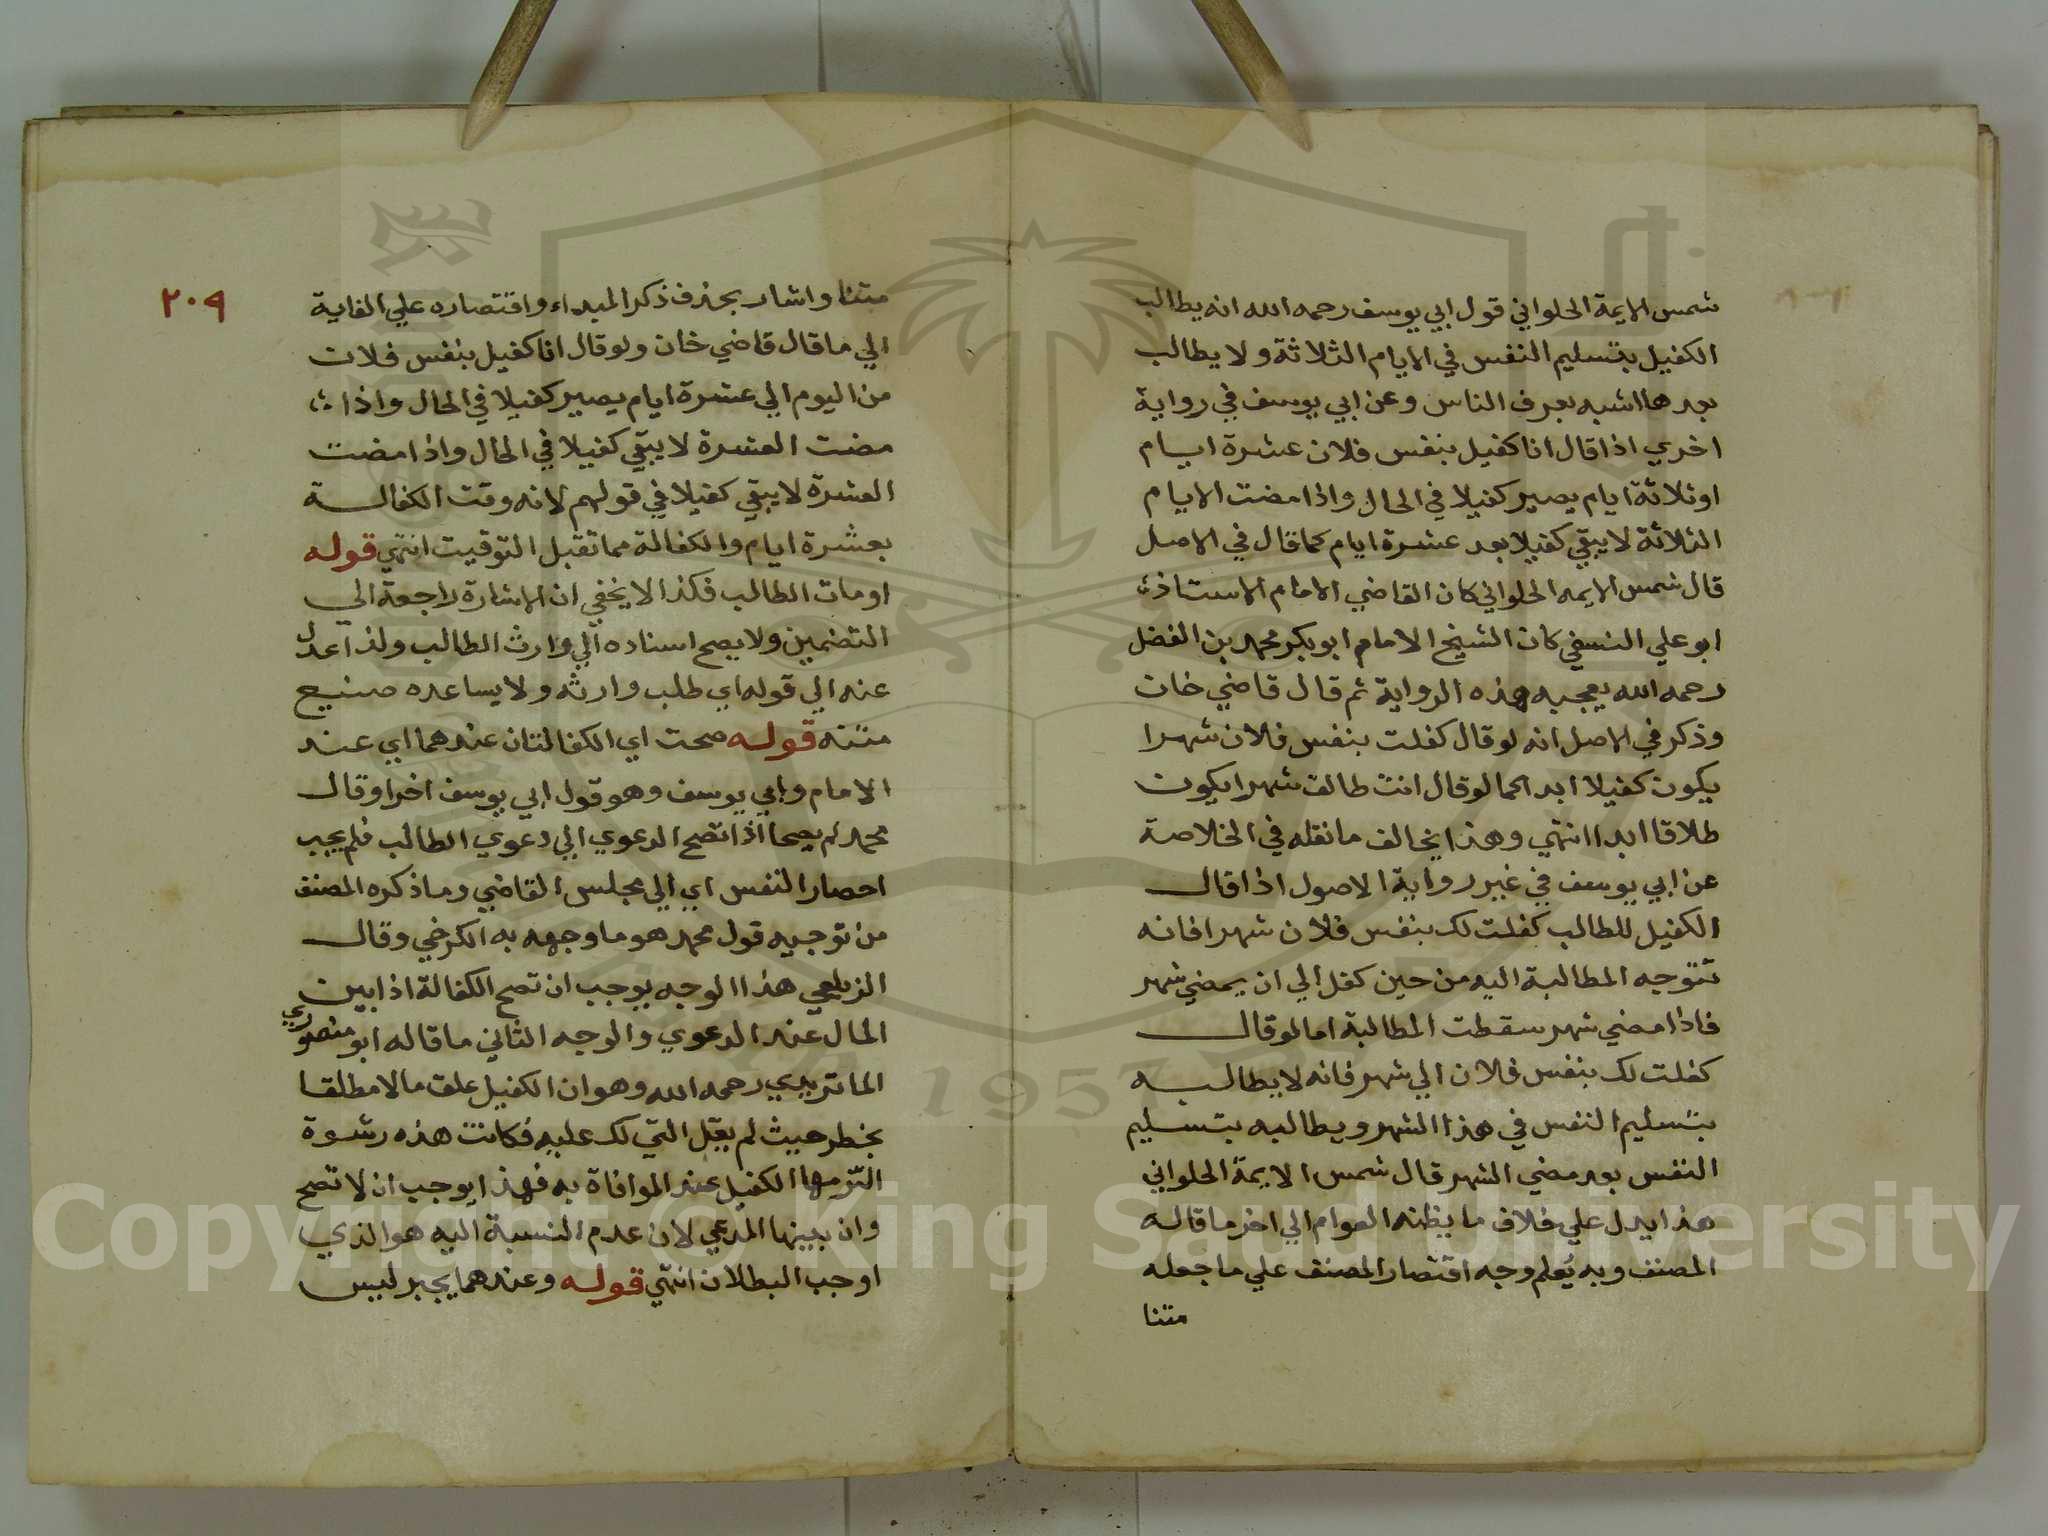 شمس الايمة الحلواني قول ابي يوسف رحمه الله انه يطالب
الكفيل بتسليم النفس في الايام الثلاثة ولا يطالب
بعدها اشبه بعرف الناس وعن ابي يوسف في رواية
اخري اذا قال انا كفيل بنفس فلان عشرة ايام
او ثلاثة ايام يصير كفيلا في الحال واذا مضت الايام
الثلاثة لا يبقي كفيلا بعد عشرة ايام كما قال في الاصل
قال شمس الايمه الحلواني كان القاضي الامام الاستاذ
ابو علي النسفي كان الشيخ الامام ابو بكر محمد بن الفضل
رحمه الله يعجبه هذه الرواية ثم قال قاضي خان
وذكر في الاصل انه لو قال كفلت بنفس فلان شهرا
يكون كفيلا ابدا كما لو قال انت طالق شهرا يكون
طلاقا ابدا انتهي وهذا يخالف ما نقله في الخلاصة
عن ابي يوسف في غير رواية الاصول اذا قال
الكفيل للطالب كفلت لك بنفس فلان شهرا فانه
تتوجه المطالبة اليه من حين كفل الي ان يمضي شهر
فاذا مضي شهر سقطت المطالبة اما لو قال
كفلت لك بنفس فلان الي شهر فانه لا يطالبه
بتسليم النفس في هذا الشهر ويطالبه بتسليم
النفس بعد مضي الشهر قال شمس الايمة الحلواني
هذا يدل علي خلاف ما يظنه العوام الي اخر ما قاله
المصنف وبه يُعلم وجه اقتصار المصنف علي ما جعله
متنا
٢٠٩
متنا واشار بحذف ذكر المبداء واقتصاره علي الغاية
الي ما قال قاضي خان ولو قال انا كفيل بنفس فلان
من اليوم الي عشرة ايام يصير كفيلا في الحال واذا
مضت العشرة لا يبقي كفيلا في الحال واذا مضت
العشرة لا يبقي كفيلا في قولهم لانه وقت الكفالة
بعشرة ايام والكفالة مما تقبل التوقيت انتهي قوله
او مات الطالب فكذا لا يخفي ان الاشارة راجعة الي
التضمين ولا يصح اسناده الي وارث الطالب ولذا عدل
عنه الي قوله اي طلب وارثه ولا يساعده صنيع
متنه قوله صحت اي الكفالتان عندهما اي عند
الامام وابي يوسف وهو قول ابي يوسف اخرا وقال
محمد لم يصحا اذا تصح الدعوي الي دعوي الطالب فلم يجب
احصار النفس اي الي مجلس القاضي وما ذكره المصنف
من توجيه قول محمد هو ما وجهه به الكرخي وقال
الزيلعي هذا الوجه يوجب ان تصح الكفالة اذا بين
المال عند الدعوي والوجه الثاني ما قاله ابو منصوري
الماتريدي رحمه الله وهو ان الكفيل علق مالا مطلقا
بخطر حيث لم يقل التي لك عليه فكانت هذه رشوة
التزمها الكفيل عند الموافاة به فهذا يوجب ان لا تصح
وان بينها المدعي لان عدم النسبة اليه هو الذي
اوجب البطلان انتهي قوله وعندهما يجبر ليس
Copyright © King Saud University
1957